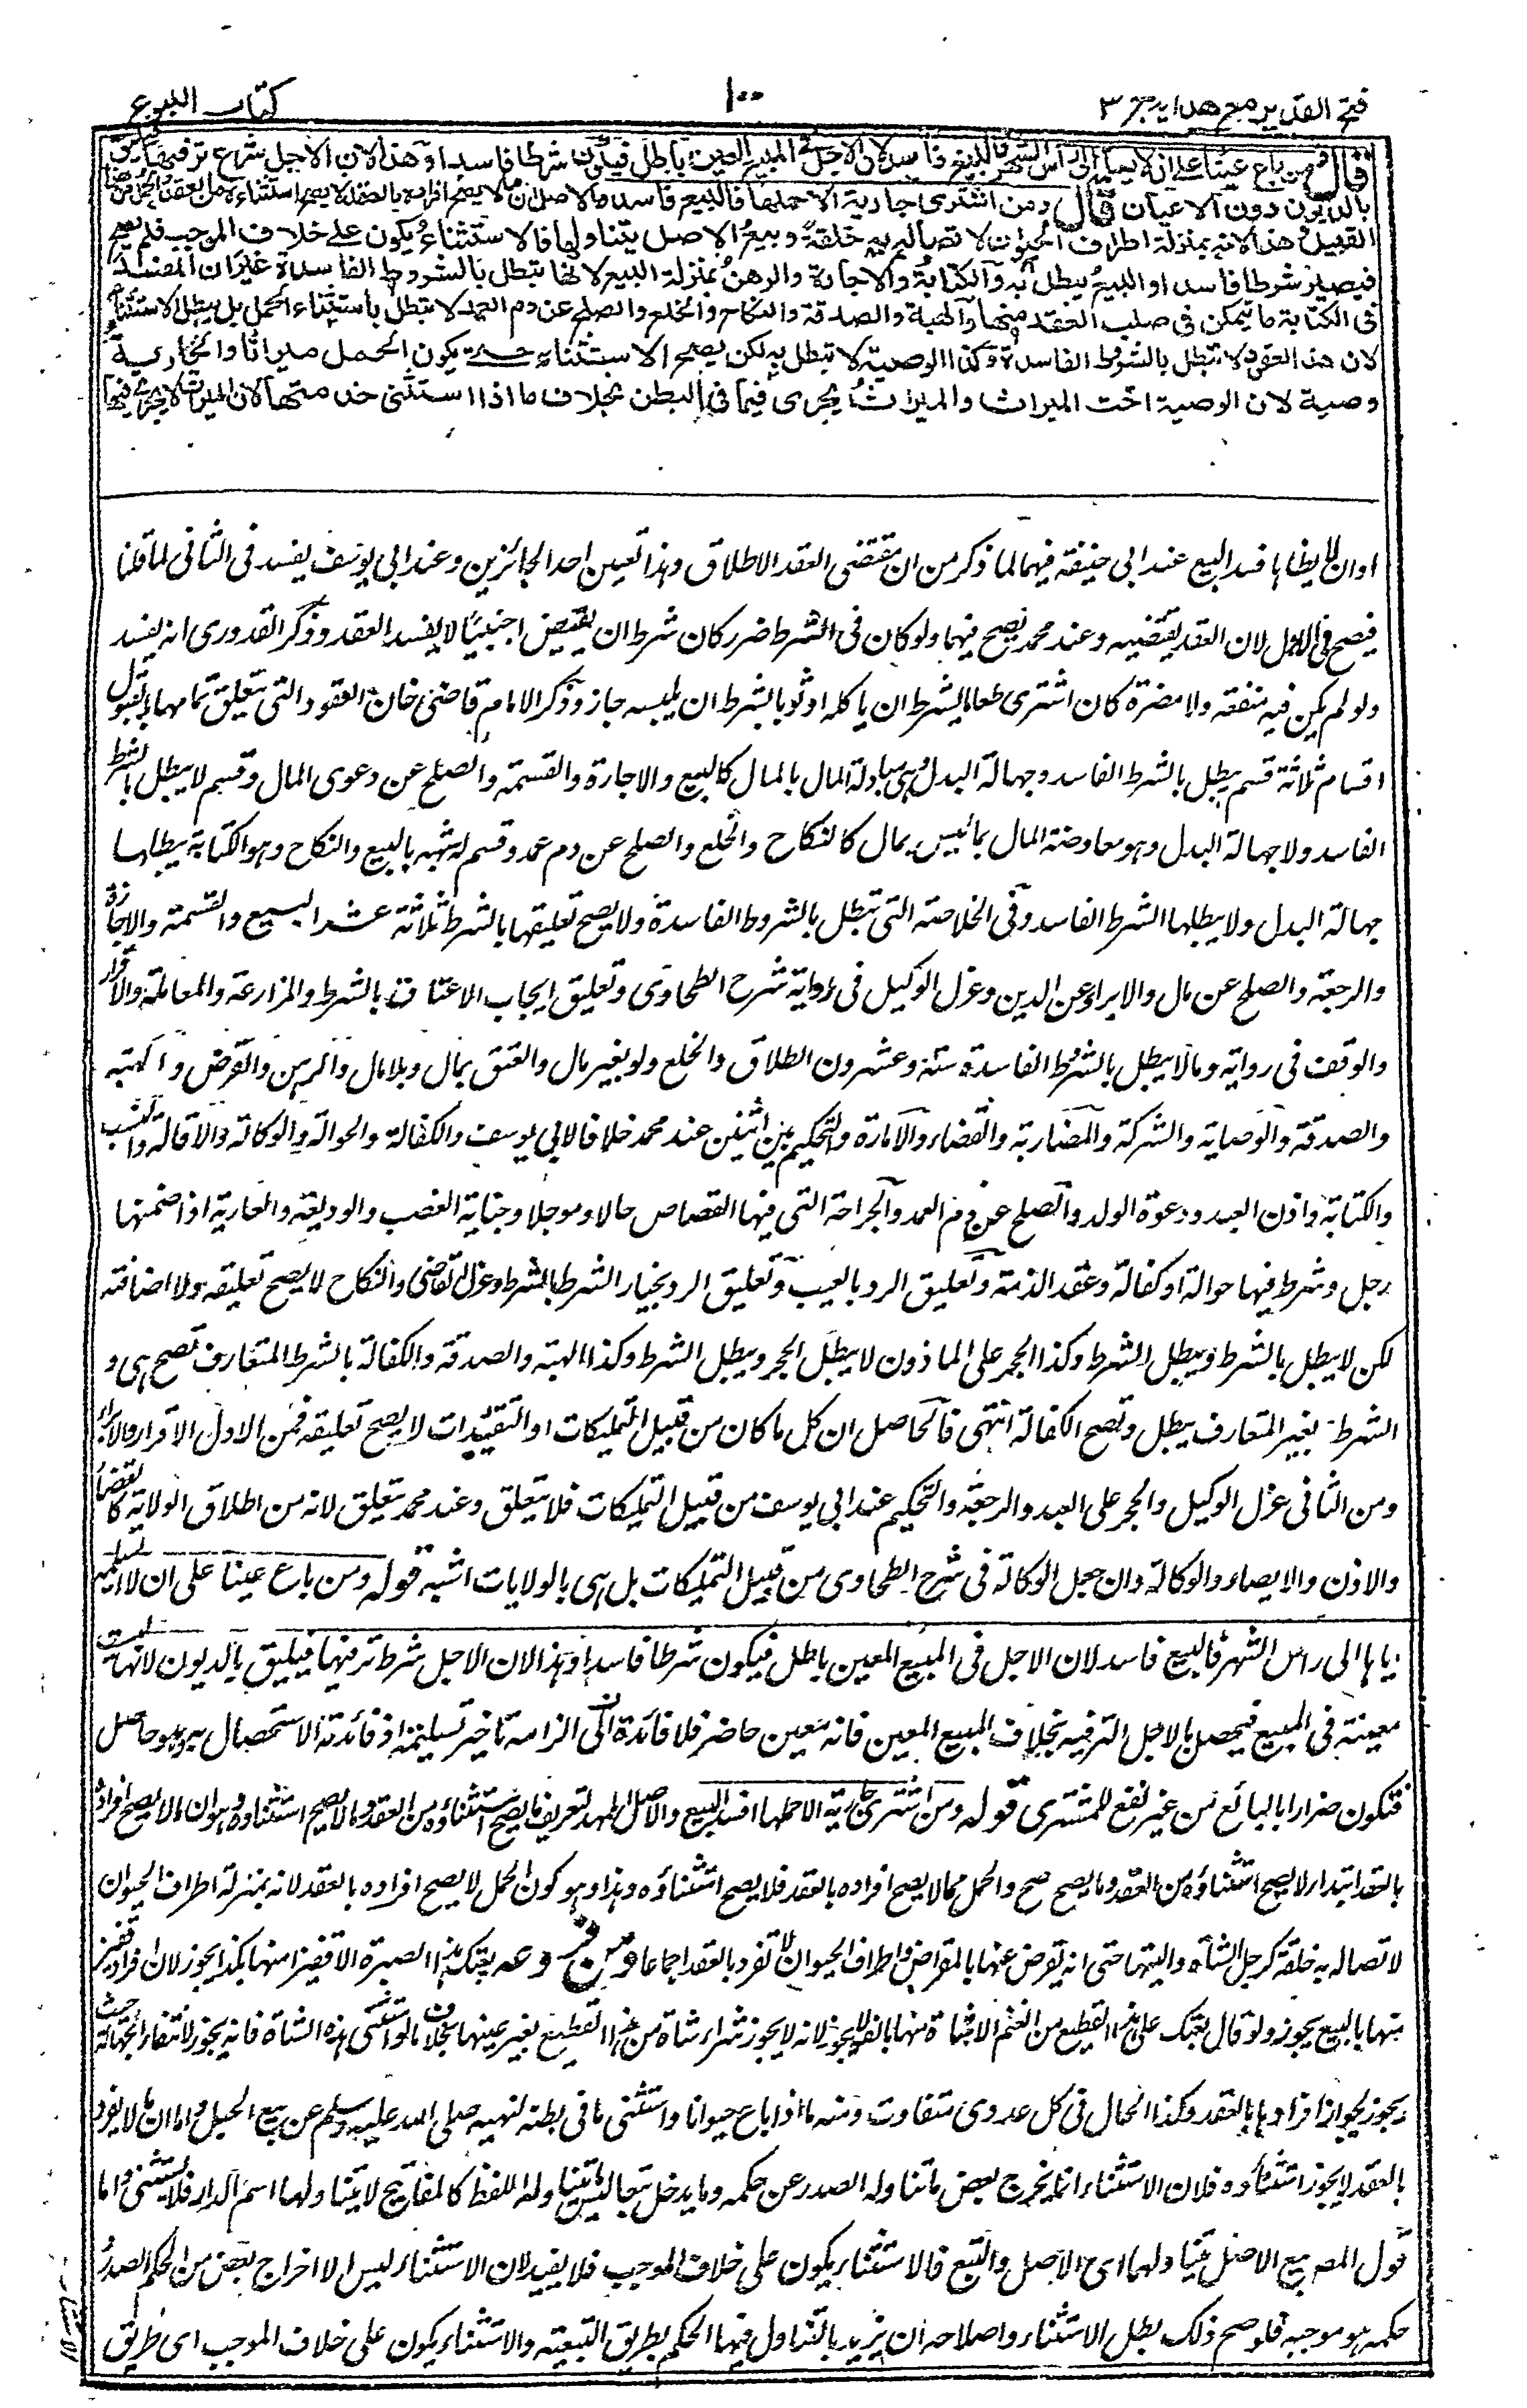 فتح القدير مع هدايه جز ٣
١٠٠
كتاب البيوع
قال ومن باع عينا على ان لا يسلمها الى رأس الشهر فالبيع فاسد لان الاجل فى المبيع العين باطل فيكون شرطا فاسدا وهذا لان الاجل شرع ترفيها فيليق
بالديون دون الاعيان قال ومن اشترى جارية الا حملها فالبيع فاسد والاصل ان ما لا يصح افراده بالعقد لا يصح استثناءه من العقد والحمل من هذا
القبيل وهذا لانه بمنزلة اطراف الحيوان لاتصاله به خلقة وبيع الاصل يتناولها فالاستثناء يكون على خلاف الموجب فلم يصح
فيصير شرطا فاسدا والبيع يبطل به والكتابة والاجارة والرهن بمنزلة البيع لانها تبطل بالشروط الفاسدة غير ان المفسد
فى الكتابة ما يتمكن فى صلب العقد منها والهبة والصدقة والنكاح والخلع والصلح عن دم العمد لا تبطل باستثناء الحمل بل يبطل الاستثناء
لان هذه العقود لا تبطل بالشروط الفاسدة وكذا الوصية لا تبطل به لكن يصح الاستثناء حتى يكون الحمل ميراثا والجارية
وصية لان الوصية اخت الميراث والميراث يجرى فيما فى البطن بخلاف ما اذا استثنى خدمتها لان الميراث لا يجرى فيها
او ان لا يطاها فسد البيع عند ابى حنيفة فيهما لما ذكر من ان مقتضى العقد الاطلاق وهذا تعيين احد الجائزين وعند ابى يوسف يفسد فى الثانى لما قلنا
فيصح فى الاول لان العقد يقتضيه وعند محمد يصح فيهما ولو كان فى الشرط ضرر كان شرط ان يقرض اجنبيا لا يفسد العقد وذكر القدورى انه يفسد
ولو لم يكن فيه منفعة ولا مضرة كان اشترى طعاما بشرط ان ياكله او ثوبا بشرط ان يلبسه جاز وذكر الامام قاضى خان العقود التى يتعلق تمامها بالقبول
اقسام ثلاثة قسم يبطل بالشرط الفاسد وجهالة البدل وهى مبادلة المال بالمال كالبيع والاجارة والقسمة والصلح عن دعوى المال وقسم لا يبطل بالشرط
الفاسد ولا جهالة البدل وهو معاوضة المال بما ليس بمال كالنكاح والخلع والصلح عن دم عمد وقسم له شبه بالبيع والنكاح وهو الكتابة يبطلها
جهالة البدل ولا يبطلها الشرط الفاسد وفى الخلاصة التى تبطل بالشروط الفاسدة ولا يصح تعليقها بالشرط ثلاثة عشر البيع والقسمة والاجازة
والرجعة والصلح عن مال والابراء عن الدين وعزل الوكيل فى رواية شرح الطحاوى وتعليق ايجاب الاعتكاف بالشرط والمزارعة والمعاملة والاقرار
والوقف فى رواية وما لا يبطل بالشروط الفاسدة ستة وعشرون الطلاق والخلع ولو بغير مال والعتق بمال وبلا مال والرهن والقرض والهبة
والصدقة والوصاية والشركة والمضاربة والقضاء والامارة والتحكيم بين اثنين عند محمد خلافا لابى يوسف والكفالة والحوالة والوكالة والاقالة والنسب
والكتابة واذن العبد ودعوة الولد والصلح عن دم العمد والجراحة التى فيها القصاص حالا وموجلا وجناية الغصب والوديعة والعارية اذا ضمنها
رجل وشرط فيها حوالة او كفالة وعقد الذمة وتعليق الرد بالعيب وتعليق الرد بخيار الشرط بالشرط وعزل القاضى والنكاح لا يصح تعليقه ولا اضافته
لكن لا يبطل بالشرط ويبطل الشرط وكذا الحجر على الماذون لا يبطل الحجر ويبطل الشرط وكذا الهبة والصدقة والكفالة بالشرط المتعارف تصح هى و
الشرط بغير المتعارف يبطل وتصح الكفالة انتهى فالحاصل ان كل ما كان من قبيل التمليكات او التقييدات لا يصح تعليقه فمن الاول الاقرار والابراء
ومن الثانى عزل الوكيل والحجر على العبد والرجعة والتحكيم عند ابى يوسف من قبيل التمليكات فلا يتعلق وعند محمد يتعلق لانه من اطلاق الولاية كالقضاء
والاذن والايصاء والوكالة وان جعل الوكالة فى شرح الطحاوى من قبيل التمليكات بل هى بالولايات اشبه قوله ومن باع عينا على ان لا يسلمه
اياها الى راس الشهر فالبيع فاسد لان الاجل فى المبيع المعين باطل فيكون شرطا فاسدا وهذا لان الاجل شرط ترفيها فيليق بالديون لانها ليست
معينة فى المبيع فيحصل بالاجل الترفيه بخلاف المبيع المعين فانه معين حاضر فلا فائدة فى الزامه تاخير تسليمه اذ فائدته الاستحصال به وهو حاصل
فتكون ضرارا بالبائع من غير نفع للمشترى قوله ومن اشترى جارية الا حملها افسد البيع والاصل الممهد لتعريف ما يصح استثناؤه من العقد وما لا يصح استثناؤه هو ان ما لا يصح افراده
بالعقد ابتداء لا يصح استثناؤه من العقد وما يصح صح والحمل مما لا يصح افراده بالعقد فلا يصح استثناؤه وهذا وهو كون الحمل لا يصح افراده بالعقد لانه بمنزلة اطراف الحيوان
لاتصاله به خلقة كرجل الشاة واليتها حتى انه يقرض عنها بالمقراض واطراف الحيوان لا تفرد بالعقد اجماعا ومن فروعه بعتك هذه الصبرة الا قفيزا منها بكذا يجوز لان افراد قفيز
منها بالبيع يجوز ولو قال بعتك على هذا القطيع من الغنم الا شاة منها بالف لا يجوز لانه لا يجوز شراء شاة من هذا القطيع بغير عينها بخلاف ما لو استثنى هذه الشاة فانه يجوز لانتفاء الجهالة حيث
يجوز لجواز افرادها بالعقد وكذا الحال فى كل عددى متفاوت ومنه ما اذا باع حيوانا واستثنى ما فى بطنه لنهيه صلى الله عليه وسلم عن بيع الحبل واما ان ما لا يفرد
بالعقد لا يجوز استثناؤه فلان الاستثناء انما يخرج بعض ما تناوله الصدر عن حكمه وما يدخل تبعا ليس مما يتناوله اللفظ كالمفاتيح لا يتناولها اسم الدار فلا يستثنى واما
قول المص بيع الاصل يتناولهما اى الاصل والتبع فالاستثناء يكون على خلاف الموجب فلا يفيد لان الاستثناء ليس الا اخراج بعض من الحكم الصدر
حكمه هو موجبه فلو صح ذلك بطل الاستثناء واصلاحه ان يريد بالتناول فيها الحكم بطريق التبعية والاستثناء يكون على خلاف الموجب اى طريق